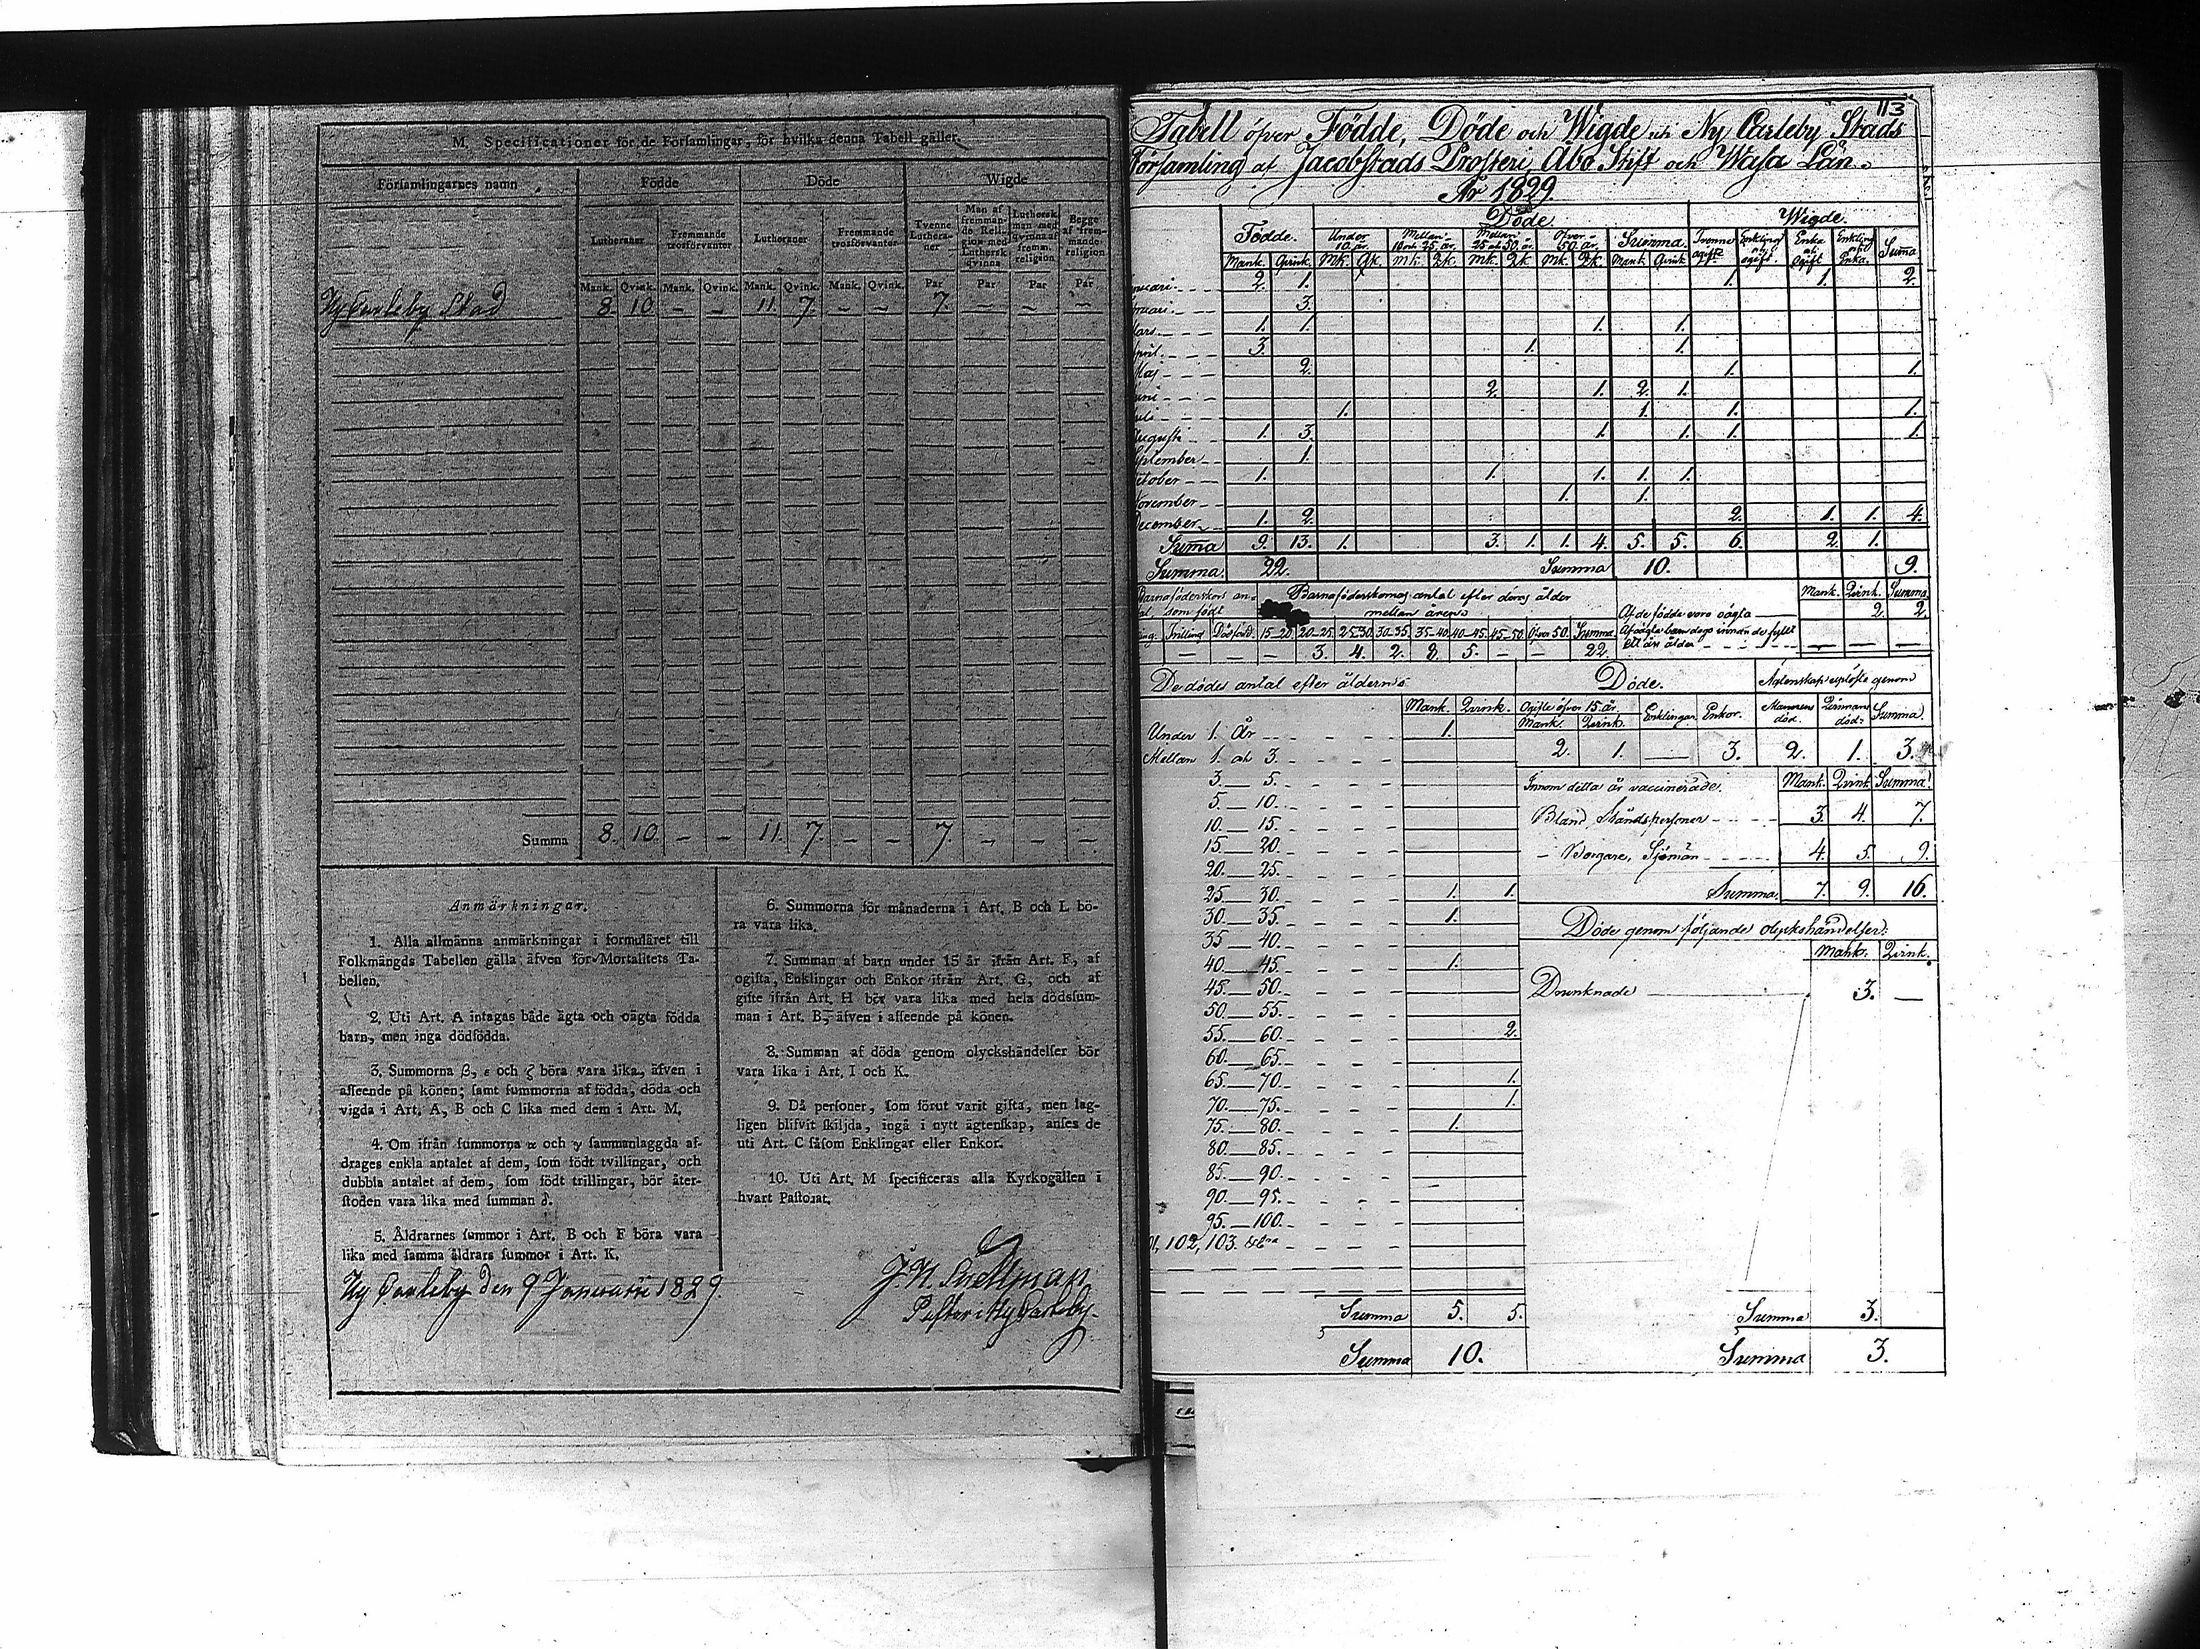 M. Specificationer för de Förſamlingar, för hvilka denna Tabell gäller.
Förſamlingarnes namn Födde Döde Wigde
Lutheraner Fremmande trosförvanter Lutheraner Fremmande trosförvanter Tvenne Lutheraner Man af fremmande Religion med Lutherſk qvinna Lutherſk man med qvinna af fremm. religion Begge af fremmande religion
Mank. Qvink. Mank. Qvink. Mank. Qvink. Mank. Qvink. Par Par Par Par
Ny Carleby Stad 8. 10 – – 11. 7. – – 7. – – –
Summa 8. 10. – – 11. 7. – – 7. – – –
Anmärkningar.
1. Alla allmänna anmärkningar i formuläret till
Folkmängds Tabellen gälla äfven för Mortalitets Ta-
bellen.
2. Uti Art. A intagas både ägta och oägta födda
barn, men inga dödfödda.
3. Summorna β, ε och ζ böra vara lika, äfven i
afſeende på könen; ſamt ſummorna af födda, döda och
vigda i Art. A, B och C lika med dem i Art. M.
4. Om ifrån ſummorna α och γ ſammanlaggda af-
drages enkla antalet af dem, ſom födt tvillingar, och
dubbla antalet af dem, ſom födt trillingar, bör åter-
ſtoden vara lika med ſumman δ.
5. Åldrarnes ſummor i Art. B och F böra vara
lika med ſamma åldrars ſummor i Art. K.
6. Summorna för månaderna i Art. B och L bö-
ra vara lika.
7. Summan af barn under 15 år ifrån Art. F, af
ogifta, Enklingar och Enkor ifrån Art. G, och af
gifte ifrån Art. H bör vara lika med hela dödsſum-
man i Art. B, äfven i afſeende på könen.
8. Summan af döda genom olyckshändelſer bör
vara lika i Art. I och K.
9. Då perſoner, ſom förut varit gifta, men lag-
ligen blifvit ſkiljda, ingå i nytt ägtenſkap, anſes de
uti Art. C ſåſom Enklingar eller Enkor.
10. Uti Art. M ſpecificeras alla Kyrkogällen i
hvart Paſtorat.
Ny Carleby den 9 Januarii 1829.
113
Tabell öfver Födde, Döde och Wigde uti Ny Carleby Stads
Församling af Jacobstads Prosteri Åbo Stift och Wasa Län.
År 1829.
Födde. Döde. Wigde.
Under 10 år. Mellan 10 och 25 år. Mellan 25 och 50 år. Öfver 50 år. Summa. Tvenne ogifte Enkling och ogift. Enka och Ogift Enkling och Enka. Suma
Mank. Qvink. Mk. Qk. Mk. Qk. Mk. Qk. Mk. Qk. Mank. Qvink.
2. 1. 1. 1. 2.
3.
1. 1. 1. 1.
3. 1. 1.
Maj 2. 1. 1.
2. 1. 2. 1.
1. 1. 1. 1.
Augusti 1. 3. 1. 1. 1. 1.
September 1.
October 1. 1. 1. 1. 1.
November 1. 1.
December 1. 2. 2. 1. 1. 4.
Suma 9. 13. 1. 3. 1. 1. 4. 5. 5. 6. 2. 1.
Summa. 22. Summa 10. 9.
Barnaföderskors an-
tal, som födt
Barnaföderskornas antal efter deras ålder
mellan åren
Trilling Dödfödd. 15-20. 20-25. 25-30. 30-35. 35-40. 40-45. 45-50. Öfver 50. Summa
— — — 3. 4. 2. 8. 5. — — 22.
Mank. Qvink. Summa
Af de födde voro oägta 2. 2.
Af oägta barn dogo innan de fyllt
ett års ålder — — —
De dödes antal efter åldern
Mank. Qvink.
Under 1. År 1.
Mellan 1. och 3.
3. — 5.
5 — 10.
10. — 15.
15 — 20.
20. — 25.
25 — 30. 1. 1.
30. — 35. 1.
35 — 40.
40. — 45. 1.
45. — 50.
50. — 55.
55. — 60. 2.
60. — 65.
65. — 70. 1.
70. — 75. 1.
75. — 80. 1.
80. — 85.
85. — 90.
90 — 95.
95. — 100.
102, 103.
Summa 5. 5.
Summa 10.
Döde. Ägtenskap uplöste genom
Ogifte öfver 15 år. Enklingar. Enkor. Mannens död. Qvinnans död. Summa.
Mank. Qvink.
2. 1. — 3. 2. 1. 3.
Innom detta år vaccinerade. Mank. Qvink. Summa.
Bland Ståndspersoner 3. 4. 7.
— Borgare, Sjömän 4. 5. 9.
Summa. 7. 9. 16.
Döde genom följande olyckshändelser:
Mank. Qvink.
Drunknade 3. —
Summa 3.
Summa 3.